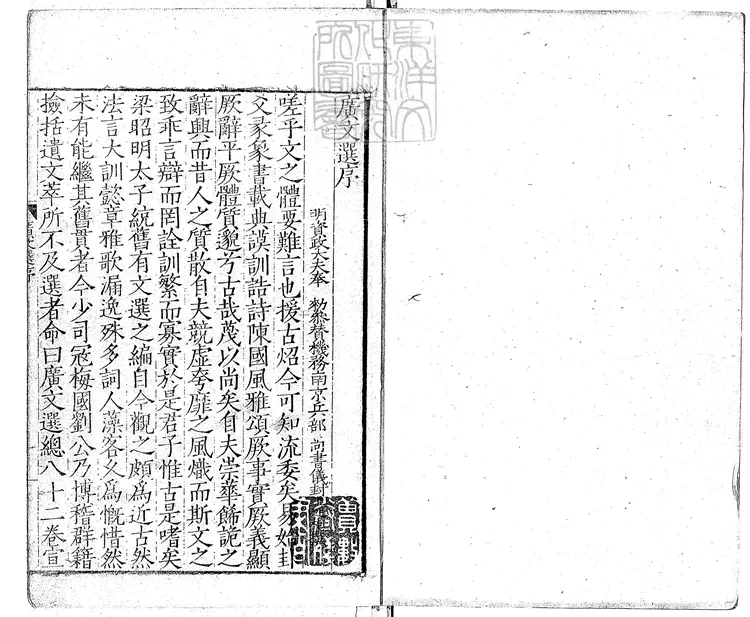 廣文選序
明資政大夫奉　勑參贊機務南京兵部尚書儀封
嗟乎文之體要難言也援古炤今可知流委矣易始卦
爻彖象書載典謨訓誥詩陳國風雅頌厥事實厥義顯
厥辭平厥體質邈乎古哉蔑以尚矣自夫崇華飾詭之
辭興而昔人之質散自夫競虛夸靡之風熾而斯文之
致乖言辯而罔詮訓繁而寡實於是君子惟古是嗜矣
梁昭明太子統舊有文選之編自今觀之頗為近古然
法言大訓懿章雅歌漏逸殊多詞人藻客久為慨惜然
未有能繼其舊貫者今少司冦梅國劉公乃博稽群籍
撿括遺文萃所不及選者命曰廣文選總八十二卷宣
廣文選序